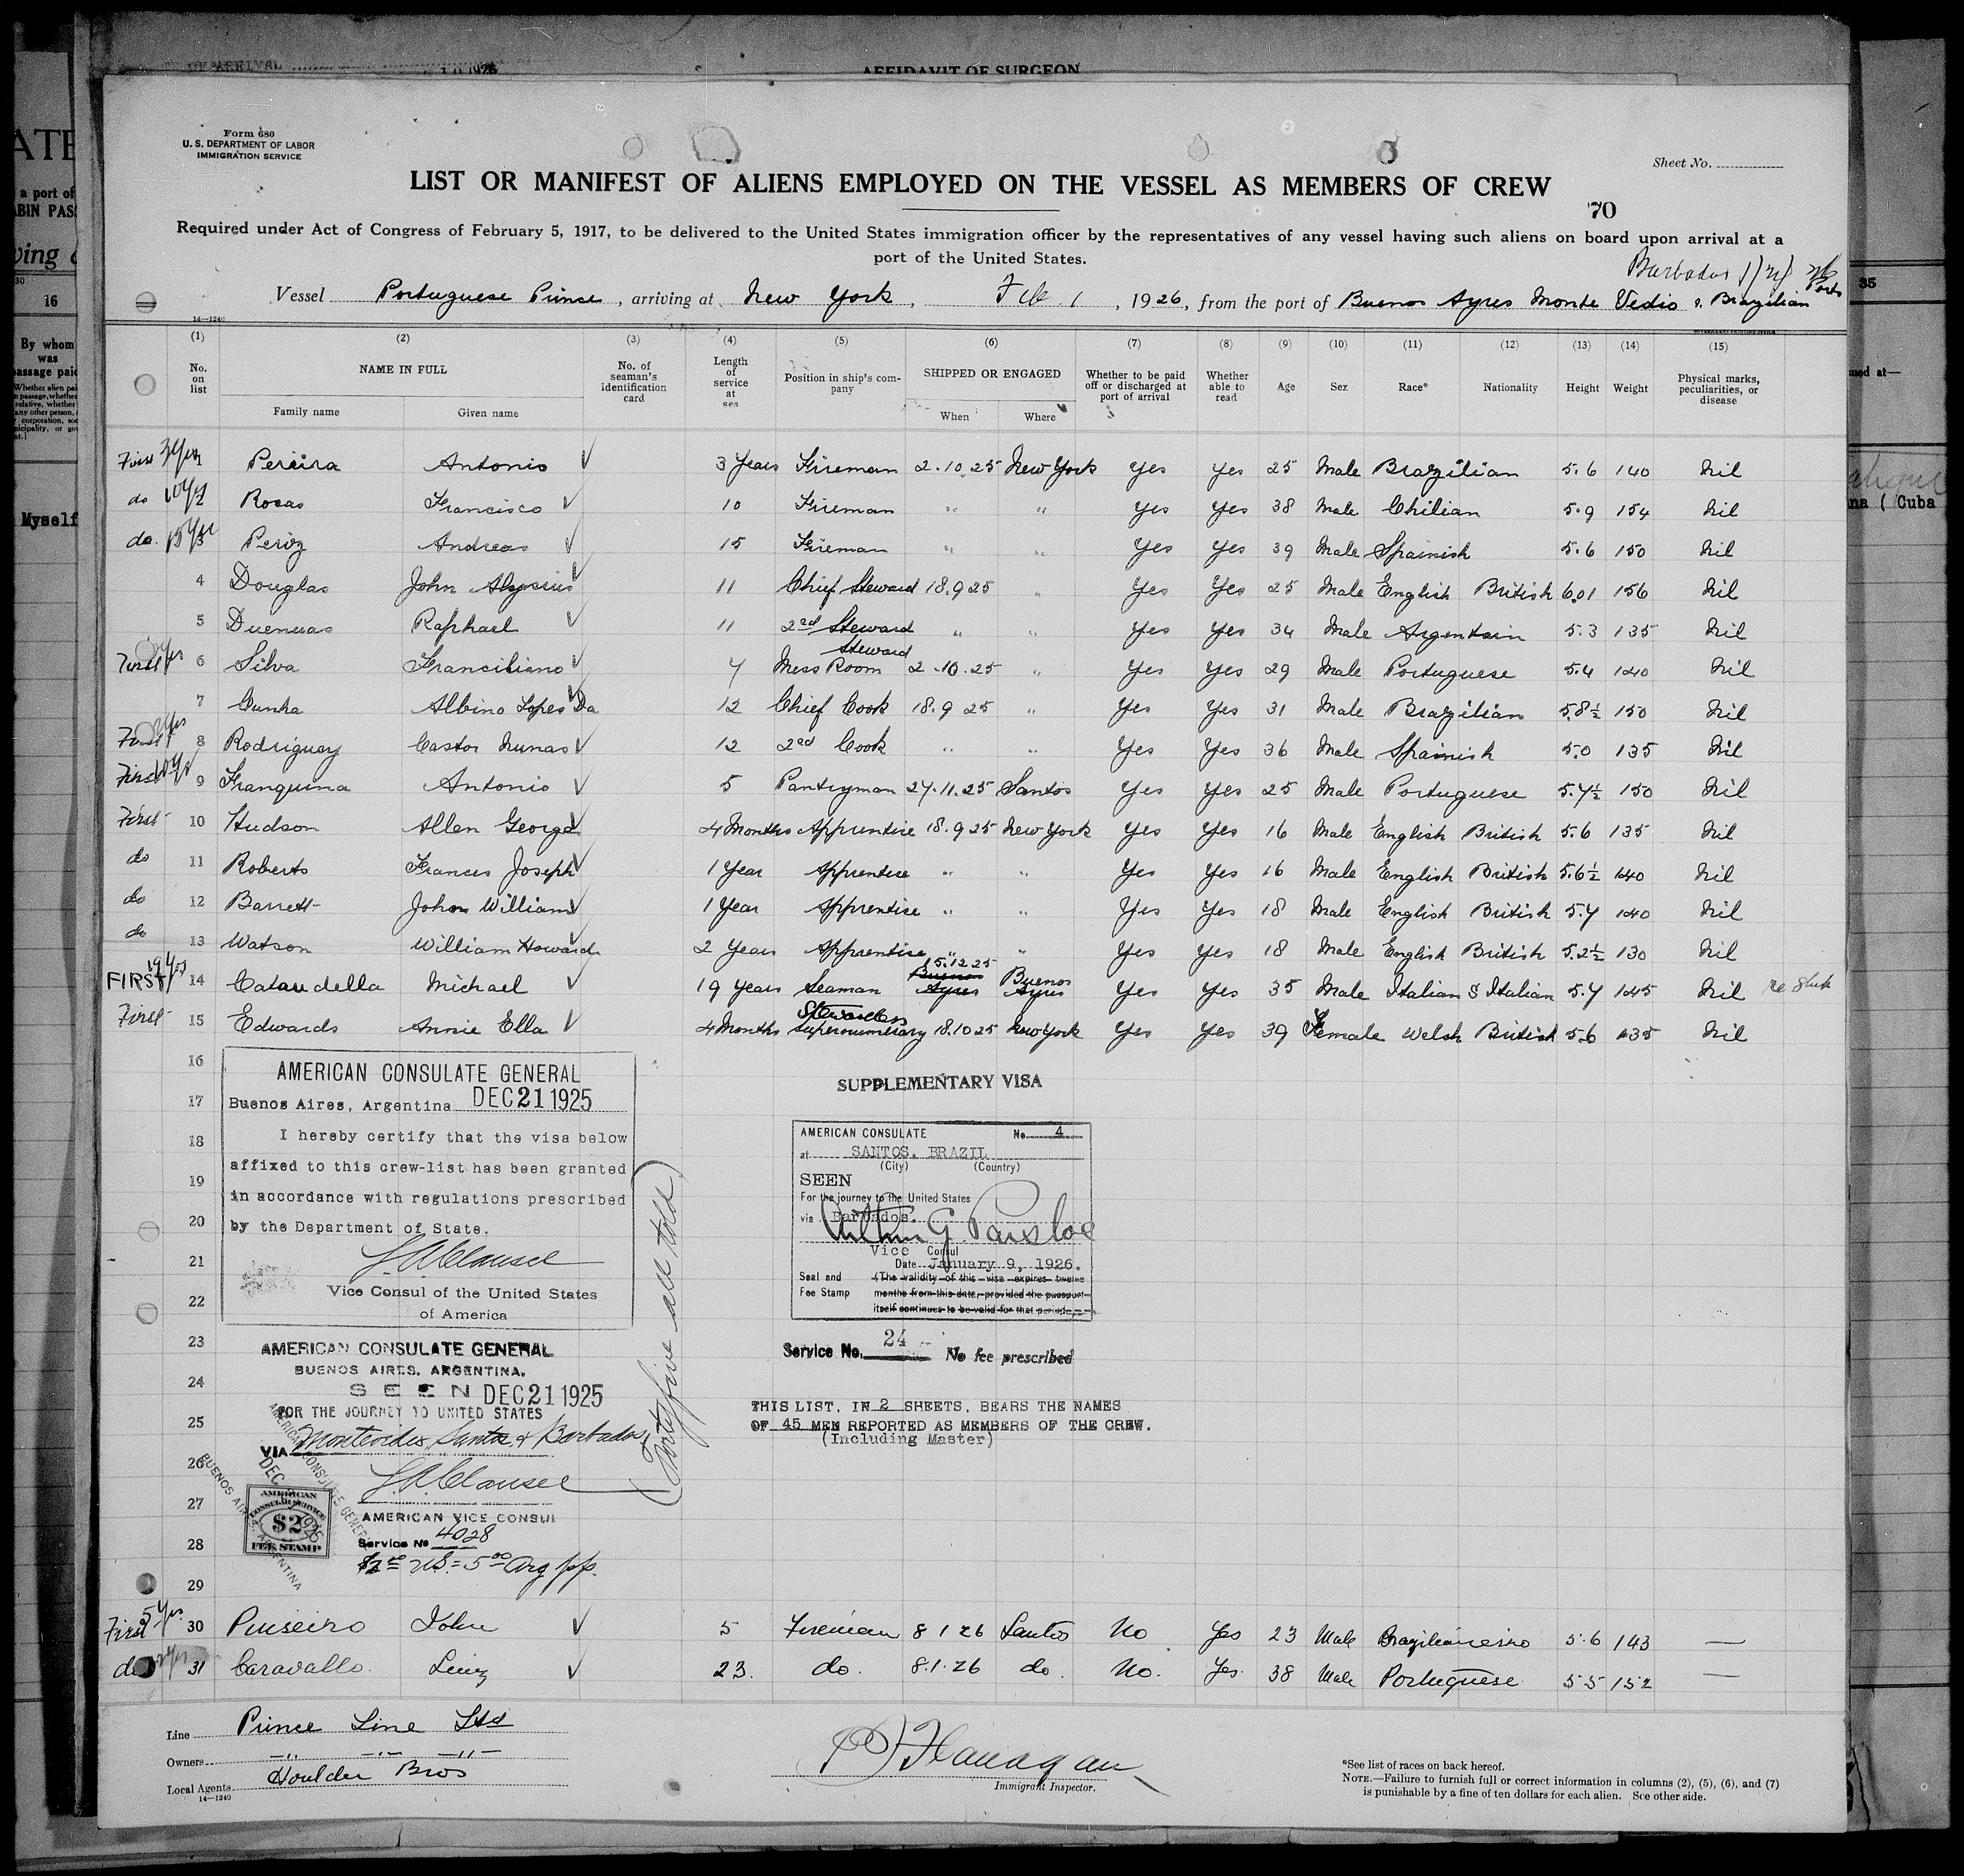 AFFIDAVIT OF SURGEON
Form 680
U. S. DEPARTMENT OF LABOR
IMMIGRATION SERVICE
Sheet No.
LIST OR MANIFEST OF ALIENS EMPLOYED ON THE VESSEL AS MEMBERS OF CREW
70
Required under Act of Congress of February 5, 1917, to be delivered to the United States immigration officer by the representatives of any vessel having such aliens on board upon arrival at a
port of the United States.
Barbados
Vessel Portuguese Prince, arriving at New York, Feb 1, 1926, from the port of Buenos Ayres Monte Vedio & Brazilian Ports
14—1240
(1) (2) (3) (4) (5) (6) (7) (8) (9) (10) (11) (12) (13) (14) (15)
No. on list NAME IN FULL No. of seaman's identification card Length of service at sea Position in ship's company SHIPPED OR ENGAGED Whether to be paid off or discharged at port of arrival Whether able to read Age Sex Race* Nationality Height Weight Physical marks, peculiarities, or disease
Family name Given name When Where
First 3 yrs Pereira Antonio 3 Years Fireman 2.10.25 New York Yes Yes 25 Male Brazilian 5.6 140 Nil
do 10 yrs 2 Rosas Francisco 10 Fireman " " Yes Yes 38 Male Chilian 5.9 154 Nil
do. 15 yrs 3 Peroz Andreas 15 Fireman " " Yes Yes 39 Male Spainish 5.6 150 Nil
4 Douglas John Aloysius 11 Chief Steward 18.9.25 " Yes Yes 25 Male English British 6.01 156 Nil
5 Duenuas Raphael 11 2nd Steward " " Yes Yes 34 Male Argentain 5.3 135 Nil
First 6 Silva Franciliano 7 Mess Room Steward 2.10.25 " Yes Yes 29 Male Portuguese 5.4 140 Nil
7 Cunha Albino Lopes Da 12 Chief Cook 18.9 25 " Yes Yes 31 Male Brazilian 5.8½ 150 Nil
First 8 Rodriguez Castor Nunas 12 2nd Cook " " Yes Yes 36 Male Spainish 5.0 135 Nil
First 9 Franquina Antonio 5 Pantryman 27.11.25 Santos Yes Yes 25 Male Portuguese 5.7½ 150 Nil
First 10 Hudson Allen George 4 Months Apprentice 18.9 25 New York Yes Yes 16 Male English British 5.6 135 Nil
do 11 Roberts Frances Joseph 1 Year Apprentise " " Yes Yes 16 Male English British 5.6½ 140 Nil
do 12 Barrett John William 1 Year Apprentise " " Yes Yes 18 Male English British 5.7 140 Nil
do 13 Watson William Howard 2 Years Apprentise " " Yes Yes 18 Male English British 5.2½ 130 Nil
FIRST 19 yrs 14 Cataudella Michael 19 Years Seaman 15.12.25 Buenos Ayres Buenos Ayres Yes Yes 35 Male Italian S Italian 5.7 145 Nil
First 15 Edwards Annie Ella 4 Months Stewardess Supernumerary 18.10 25 New York Yes Yes 39 Female Welsh British 5.6 135 Nil
16
17
18
19
20
21
22
23
24
25
26
27
28
29
AMERICAN CONSULATE GENERAL
Buenos Aires, Argentina DEC 21 1925
I hereby certify that the visa below
affixed to this crew-list has been granted
in accordance with regulations prescribed
by the Department of State.
Vice Consul of the United States
of America
AMERICAN CONSULATE GENERAL
BUENOS AIRES, ARGENTINA.
SEEN DEC 21 1925
FOR THE JOURNEY TO UNITED STATES
VIA Montevideo, Santos & Barbados
AMERICAN VICE CONSUL
Service No 4028
$2.00 US = 5.00 Arg pp.
AMERICAN
CONSULAR SERVICE
$2
FEE STAMP
AMERICAN CONSULATE GENERAL
BUENOS AIRES, ARGENTINA
DEC 1925
(Forty five all told)
SUPPLEMENTARY VISA
AMERICAN CONSULATE No. 4
at SANTOS, BRAZIL
(City) (Country)
SEEN
For the journey to the United States
via Barbados.
Arthur G. Parsloe
Vice Consul
Date January 9, 1926.
Seal and (The validity of this visa expires twelve
Fee Stamp months from this date, provided the passport
itself continues to be valid for that period.)
Service No. 24 No fee prescribed
THIS LIST, IN 2 SHEETS, BEARS THE NAMES
OF 45 MEN REPORTED AS MEMBERS OF THE CREW.
(Including Master)
First 5 yrs. 30 Pinseiro John 5 Fireman 8 1 26 Santos No Yes 23 Male Brazilian 5.6 143 —
do 31 Caravallo. Luiz 23. do. 8.1.26 do. No. Yes. 38 Male Portuguese 5 5 152 —
Line Prince Line Ltd
Owners -"- -"- -"-
Local Agents Houlder Bros
14—1240
Flanagan
Immigrant Inspector.
*See list of races on back hereof.
NOTE.—Failure to furnish full or correct information in columns (2), (5), (6), and (7)
is punishable by a fine of ten dollars for each alien. See other side.
a port of
16
By whom
was
passage paid
Myself
35
Cuba